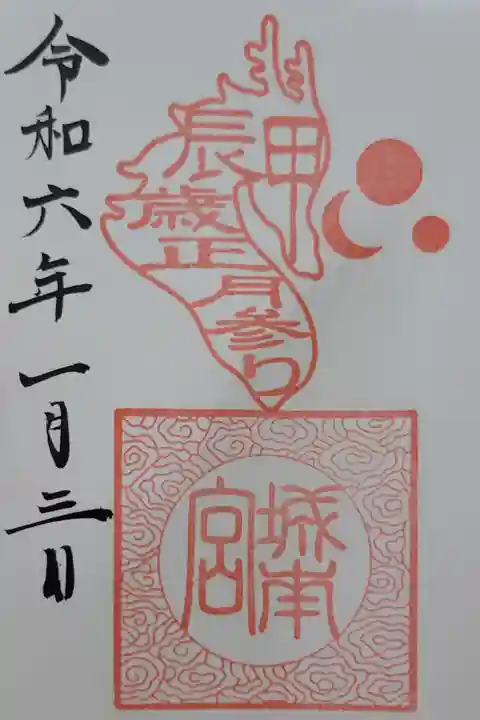 甲
辰
歳
正
月
参り
城南
宮
令和六年一月三日